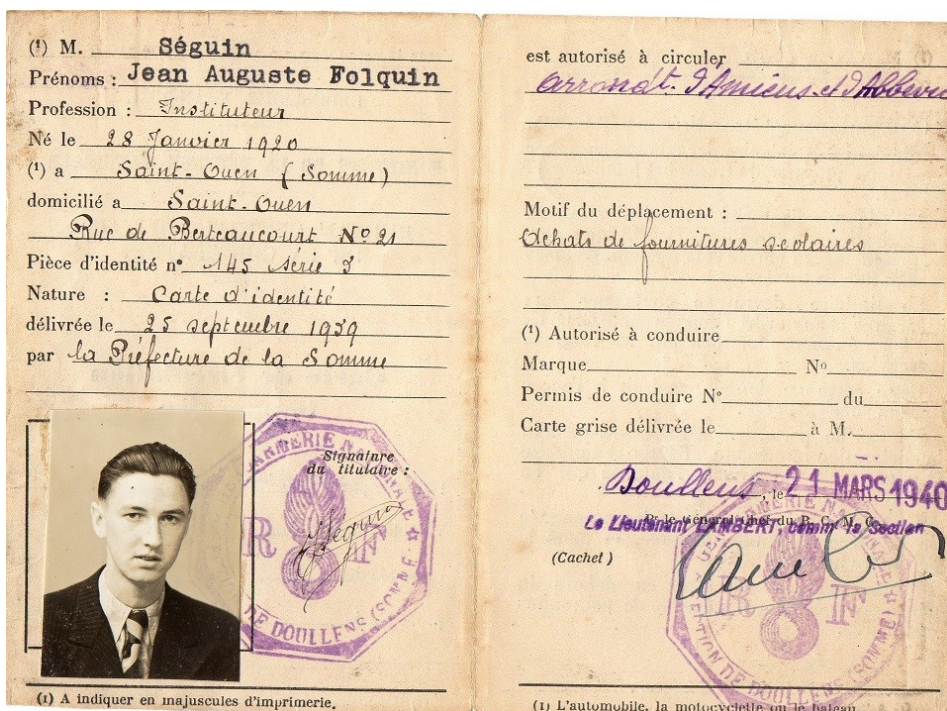 (1) M. Séguin
Prénoms : Jean Auguste Folquin
Profession : Instituteur
Né le 28 Janvier 1920
(1) a Saint-Ouen (Somme)
domicilié a Saint-Ouen
Rue de Berteaucourt Nº 21
Pièce d'identité nº 145 série 3
Nature : Carte d'identité
délivrée le 25 septembre 1939
par la Préfecture de la Somme
Signature
du titulaire :
Séguin
DE DOULLENS (SOMME)
(1) A indiquer en majuscules d'imprimerie.
est autorisé à circuler
arrondt. d'Amiens et d'Abbevi
Motif du déplacement :
Achats de fournitures scolaires
(1) Autorisé à conduire
Marque Nº
Permis de conduire Nº du
Carte grise délivrée le à M.
Doullens, le 21 MARS 1940
P. le Général Chef du
Le Lieutenant LAMBERT, comm la Section
(Cachet)
SECTION DE DOULLENS (SOMME)
(1) L'automobile, la motocyclette ou le bateau